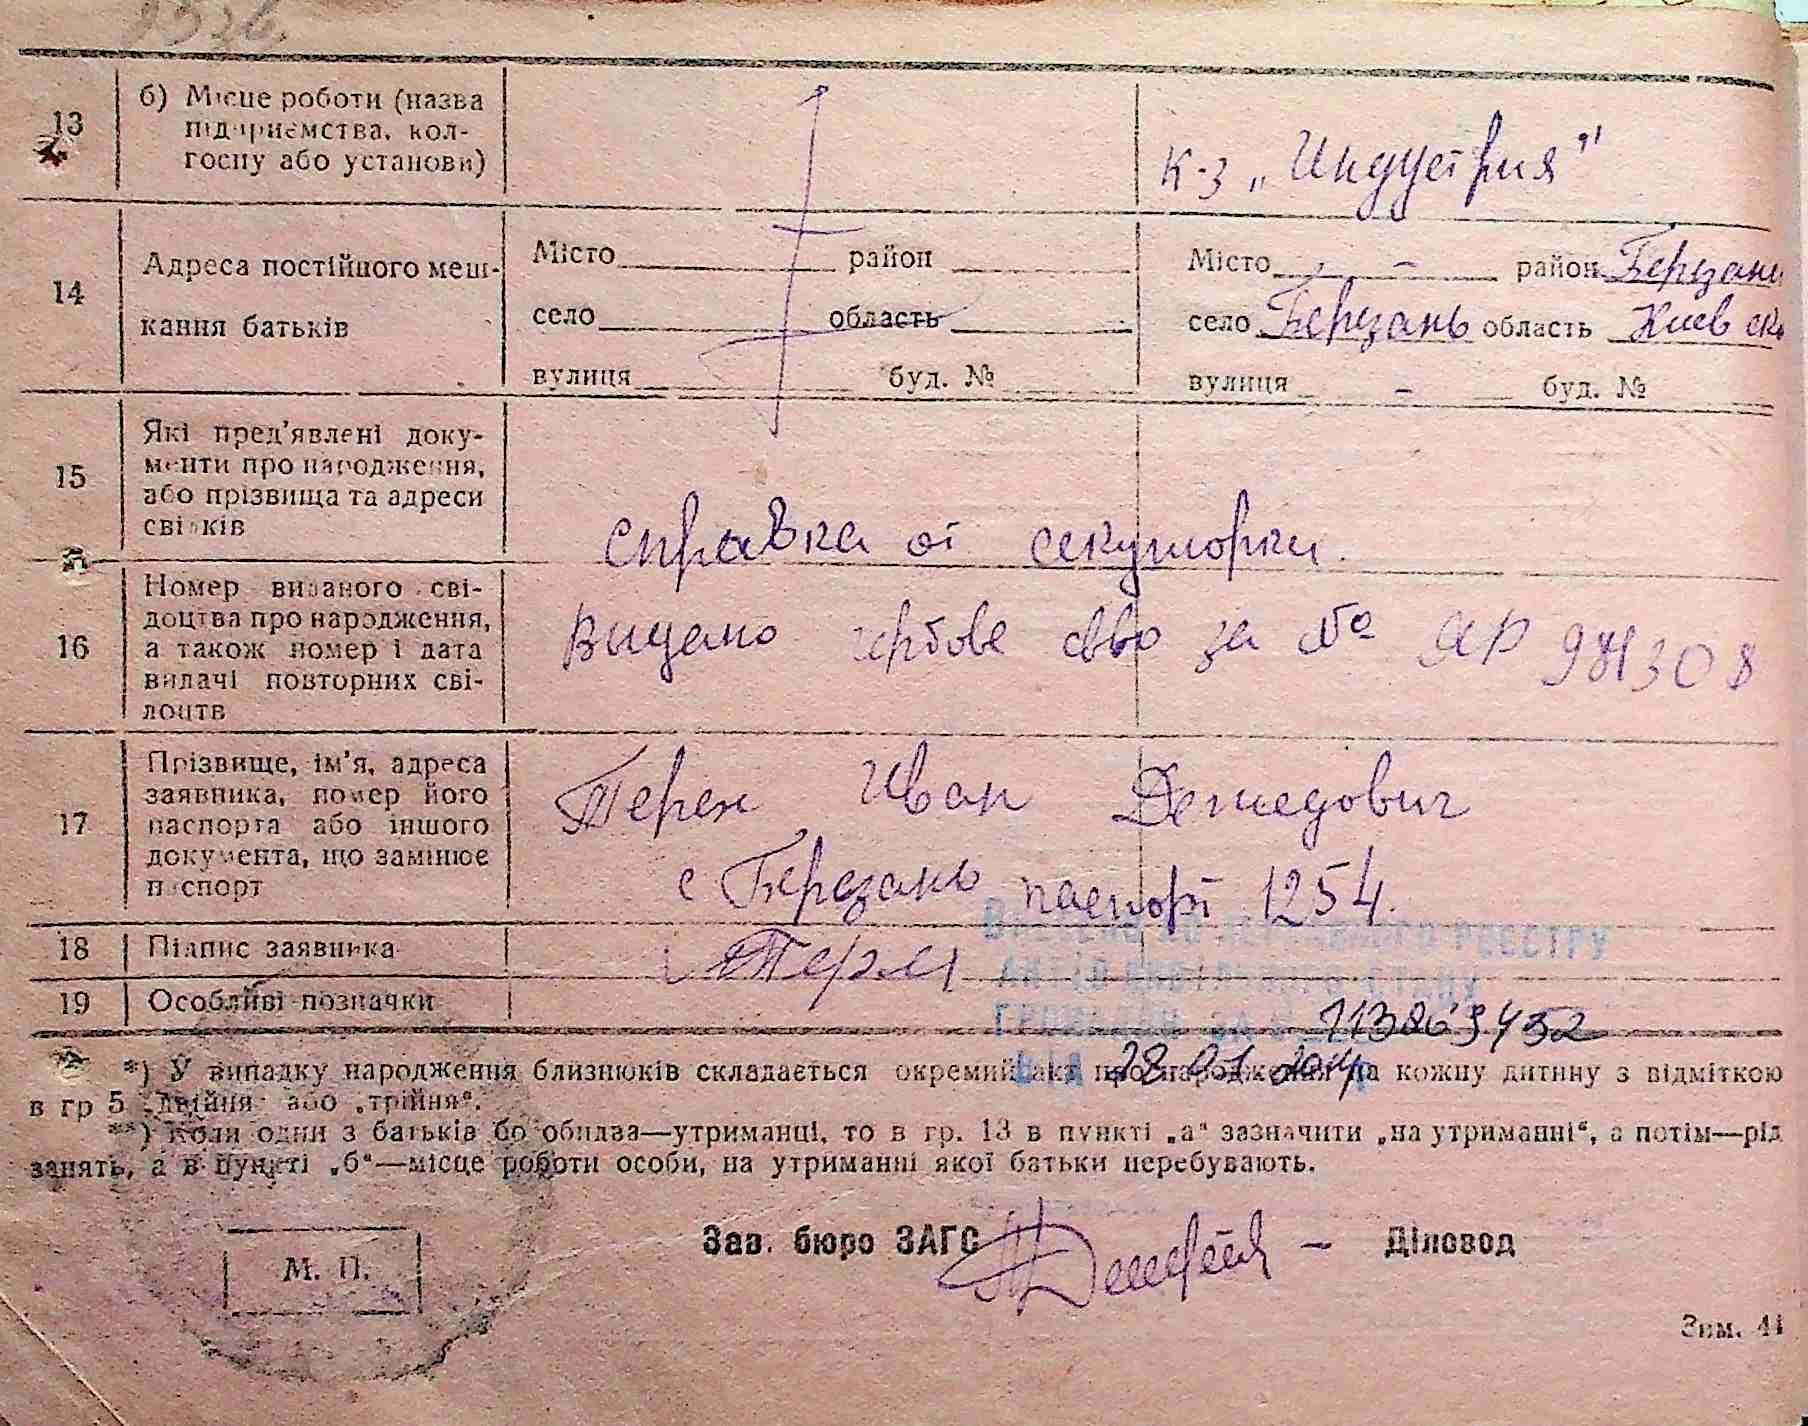 13
б) Місце роботи (назва
підприємства, кол-
госпу або установи)
к-з „Индустрия"
14
Адреса постійного меш-
кання батьків
Місто район
село область
вулиця буд. №
Місто - - район Березань
село Березань область Киевск
вулиця - буд. №
15
Які пред'явлені доку-
менти про народження,
або прізвища та адреси
свідків
справка от
16
Номер виданого сві-
доцтва про народження,
а також номер і дата
видачі повторних сві-
доцтв
Видано гербове св-во за № ЯР
17
Прізвище, ім'я, адреса
заявника, номер його
паспорта або іншого
документа, що замінює
паспорт
Терен Иван Демедович
с Березань паспорт 1254.
18
Підпис заявника
19
Особливі позначки
ДЕРЖАВНОГО РЕЄСТРУ
АКТІВ ЦИВІЛЬНОГО СТАНУ
ГРОМАДЯН ЗА №
*) У випадку народження близнюків складається окремий акт про народження на кожну дитину з відміткою
в гр 5 „двійня" або „трійня".
**) Коли один з батьків бо обидва—утриманці, то в гр. 13 в пункті „а" зазначити „на утриманні", а потім—рід
занять, а в пункті „б"—місце роботи особи, на утриманні якої батьки перебувають.
М. П.
Зав. бюро ЗАГС - Діловод
Зим. 41